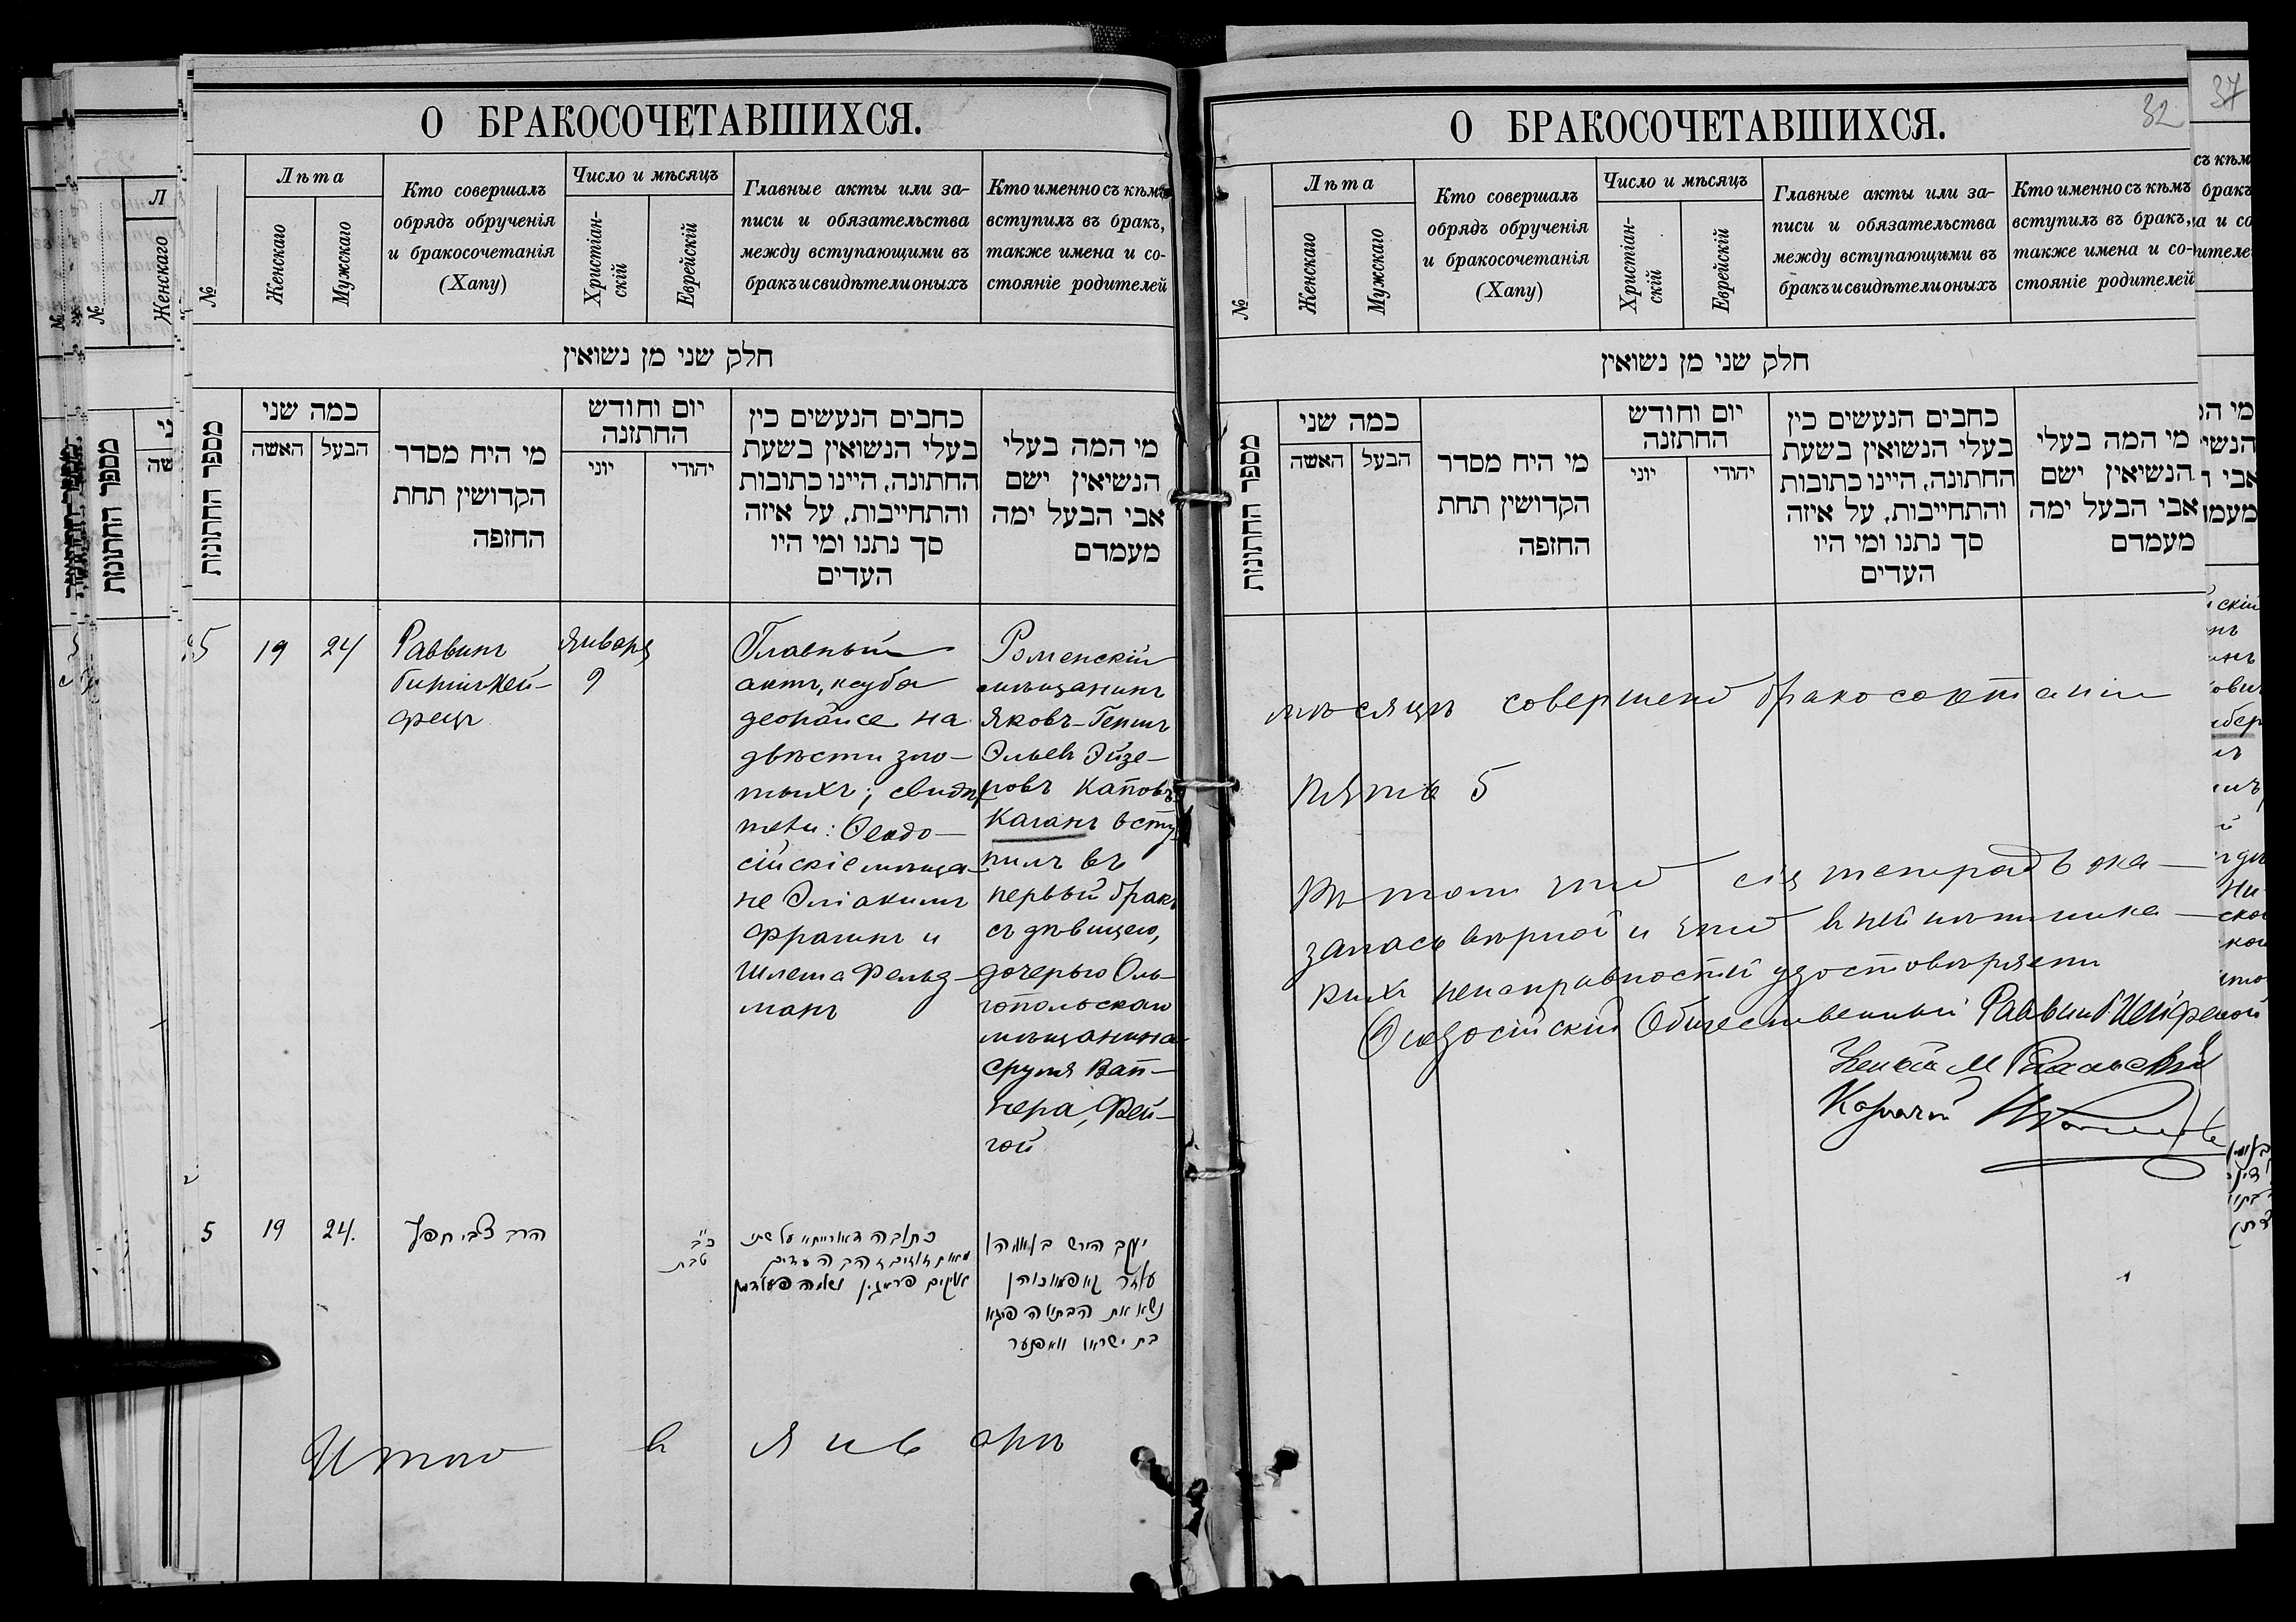 О БРАКОСОЧЕТАВШИХСЯ.
№
Лѣта
Женскаго
Мужскаго
Кто совершалъ
обрядъ обрученія
и бракосочетанія
(Хапу)
Число и мѣсяцъ
Христіан-
скій
Еврейскій
Главные акты или за-
писи и обязательства
между вступающими въ
бракъ и свидѣтели оныхъ
Кто именно съ кѣмъ
вступилъ въ бракъ,
также имена и со-
стояніе родителей
חלק שני מן נשואין
מספר החתונות
כמה שני
האשה
הבעל
מי היח מסדר
הקדושין תחת
החזפה
יום וחודש
החתזנה
יוני
יהודי
כחבים הנעשים כין
בעלי הנשואין בשעת
החתונה, היינו כתובות
והתחייבות, על איזה
סך נתנו ומי היו
העדים
מי המה בעלי
הנשיאין ישם
אבי הבעל ימה
מעמדם
5
19
24
Раввинъ
Января
9
Главный
актъ, кцуба
деорайсе на
двѣсти зло-
тыхъ; свидѣ
тели: Ѳеодо-
сійскіе мѣща-
не Эліакимъ
Фрагинъ и
Шлема Фельд-
манъ
Роменскій
мѣщанинъ
Яковъ-Гершъ
Эльевъ Эйзе-
ровъ Каповъ-
Каганъ всту
пилъ въ
первый бракъ
съ дѣвицею,
дочерью Оль-
гопольскаго
мѣщанина
Сруля Вап-
нера, Фей-
гой
5
19
24.
הרב צבי חפץ
כ״ב
טבת
כתובה דאורייתא על שתי
מאות זהובים
יעקב הירש
נשא את הבתולה פייגא
בת ישראל וואפנער
Итого
в
Янв
арѣ
О БРАКОСОЧЕТАВШИХСЯ.
32
37
№
Лѣта
Женскаго
Мужскаго
Кто совершалъ
обрядъ обрученія
и бракосочетанія
(Хапу)
Число и мѣсяцъ
Христіан-
скій
Еврейскій
Главные акты или за-
писи и обязательства
между вступающими въ
бракъ и свидѣтели оныхъ
Кто именно съ кѣмъ
вступилъ въ бракъ,
также имена и со-
стояніе родителей
חלק שני מן נשואין
מספר החתונות
כמה שני
האשה
הבעל
מי היח מסדר
הקדושין תחת
החזפה
יום וחודש
החתזנה
יוני
יהודי
כחבים הנעשים כין
בעלי הנשואין בשעת
החתונה, היינו כתובות
והתחייבות, על איזה
סך נתנו ומי היו
העדים
מי המה בעלי
הנשיאין ישם
אבי הבעל ימה
מעמדם
мѣсяцѣ совершено бракосочетаній
пять 5
Въ томъ что сія тетрадь ока-
залась вѣрной и что в ней ника-
кихъ неисправностей удостовѣряемъ
Ѳеодосійскій Общественный Раввинъ